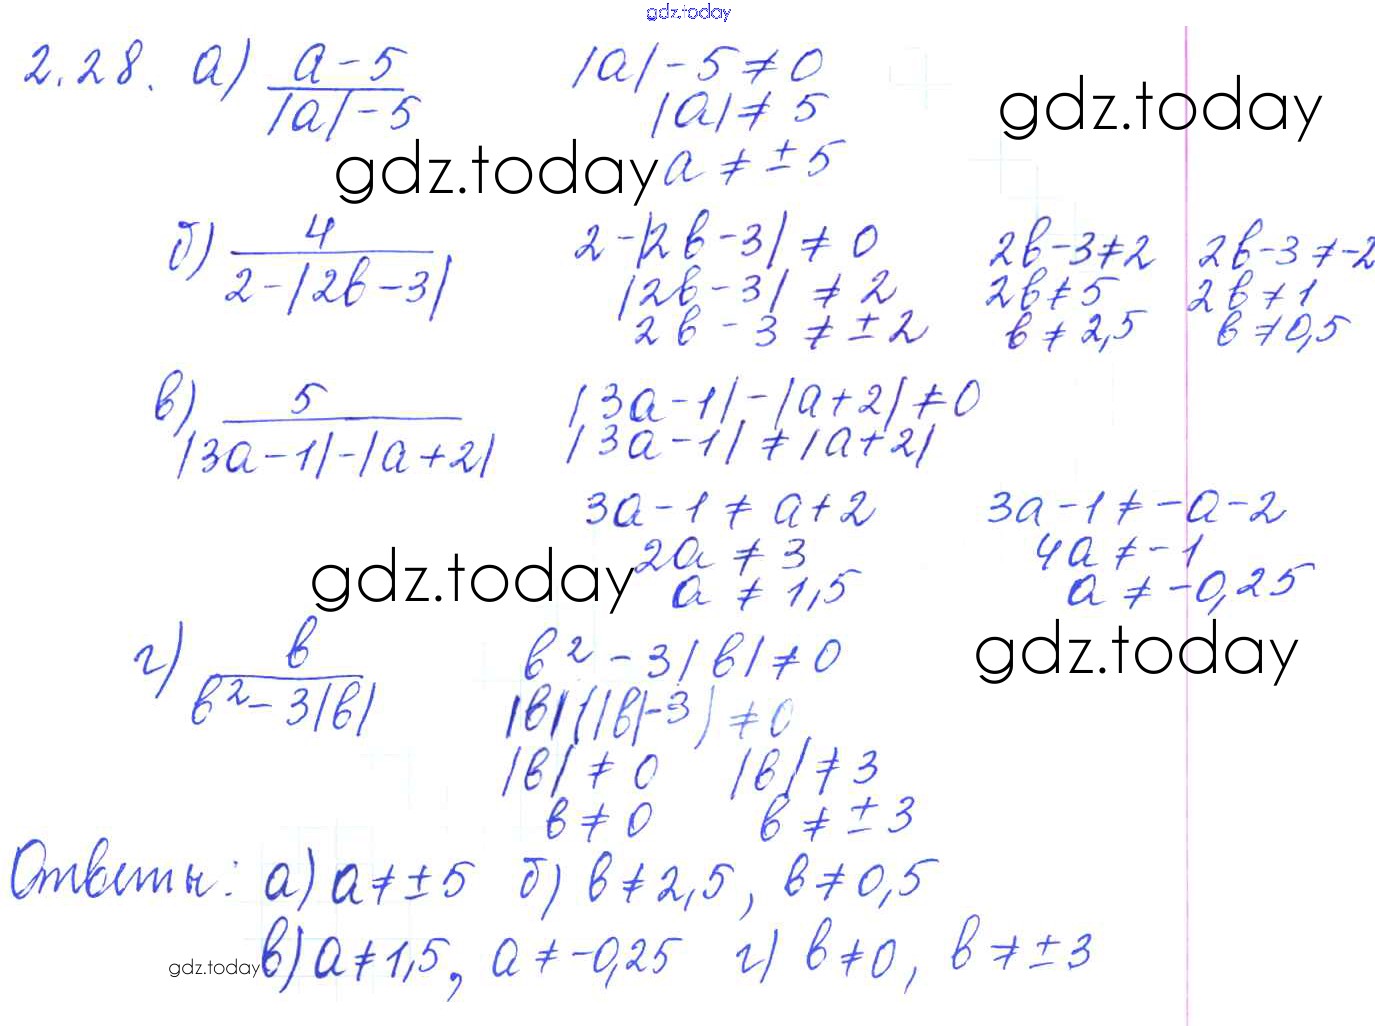 gdz.today
2.28. а) (a-5)/(|a|-5)   |a|-5≠0
|a|≠5
gdz.today
gdz.today
a≠±5
б) 4/(2-|2b-3|)   2-|2b-3|≠0   2b-3≠2   2b-3≠-2
|2b-3|≠2   2b≠5   2b≠1
2b-3≠±2   b≠2,5   b≠0,5
в) 5/(|3a-1|-|a+2|)   |3a-1|-|a+2|≠0
|3a-1|≠|a+2|
3a-1≠a+2   3a-1≠-a-2
2a≠3   4a≠-1
gdz.today
a≠1,5   a≠-0,25
gdz.today
г) b/(b²-3|b|)   b²-3|b|≠0
|b|(|b|-3)≠0
|b|≠0   |b|≠3
b≠0   b≠±3
Ответы: а) a≠±5   б) b≠2,5, b≠0,5
gdz.today
в) a≠1,5, a≠-0,25   г) b≠0, b≠±3